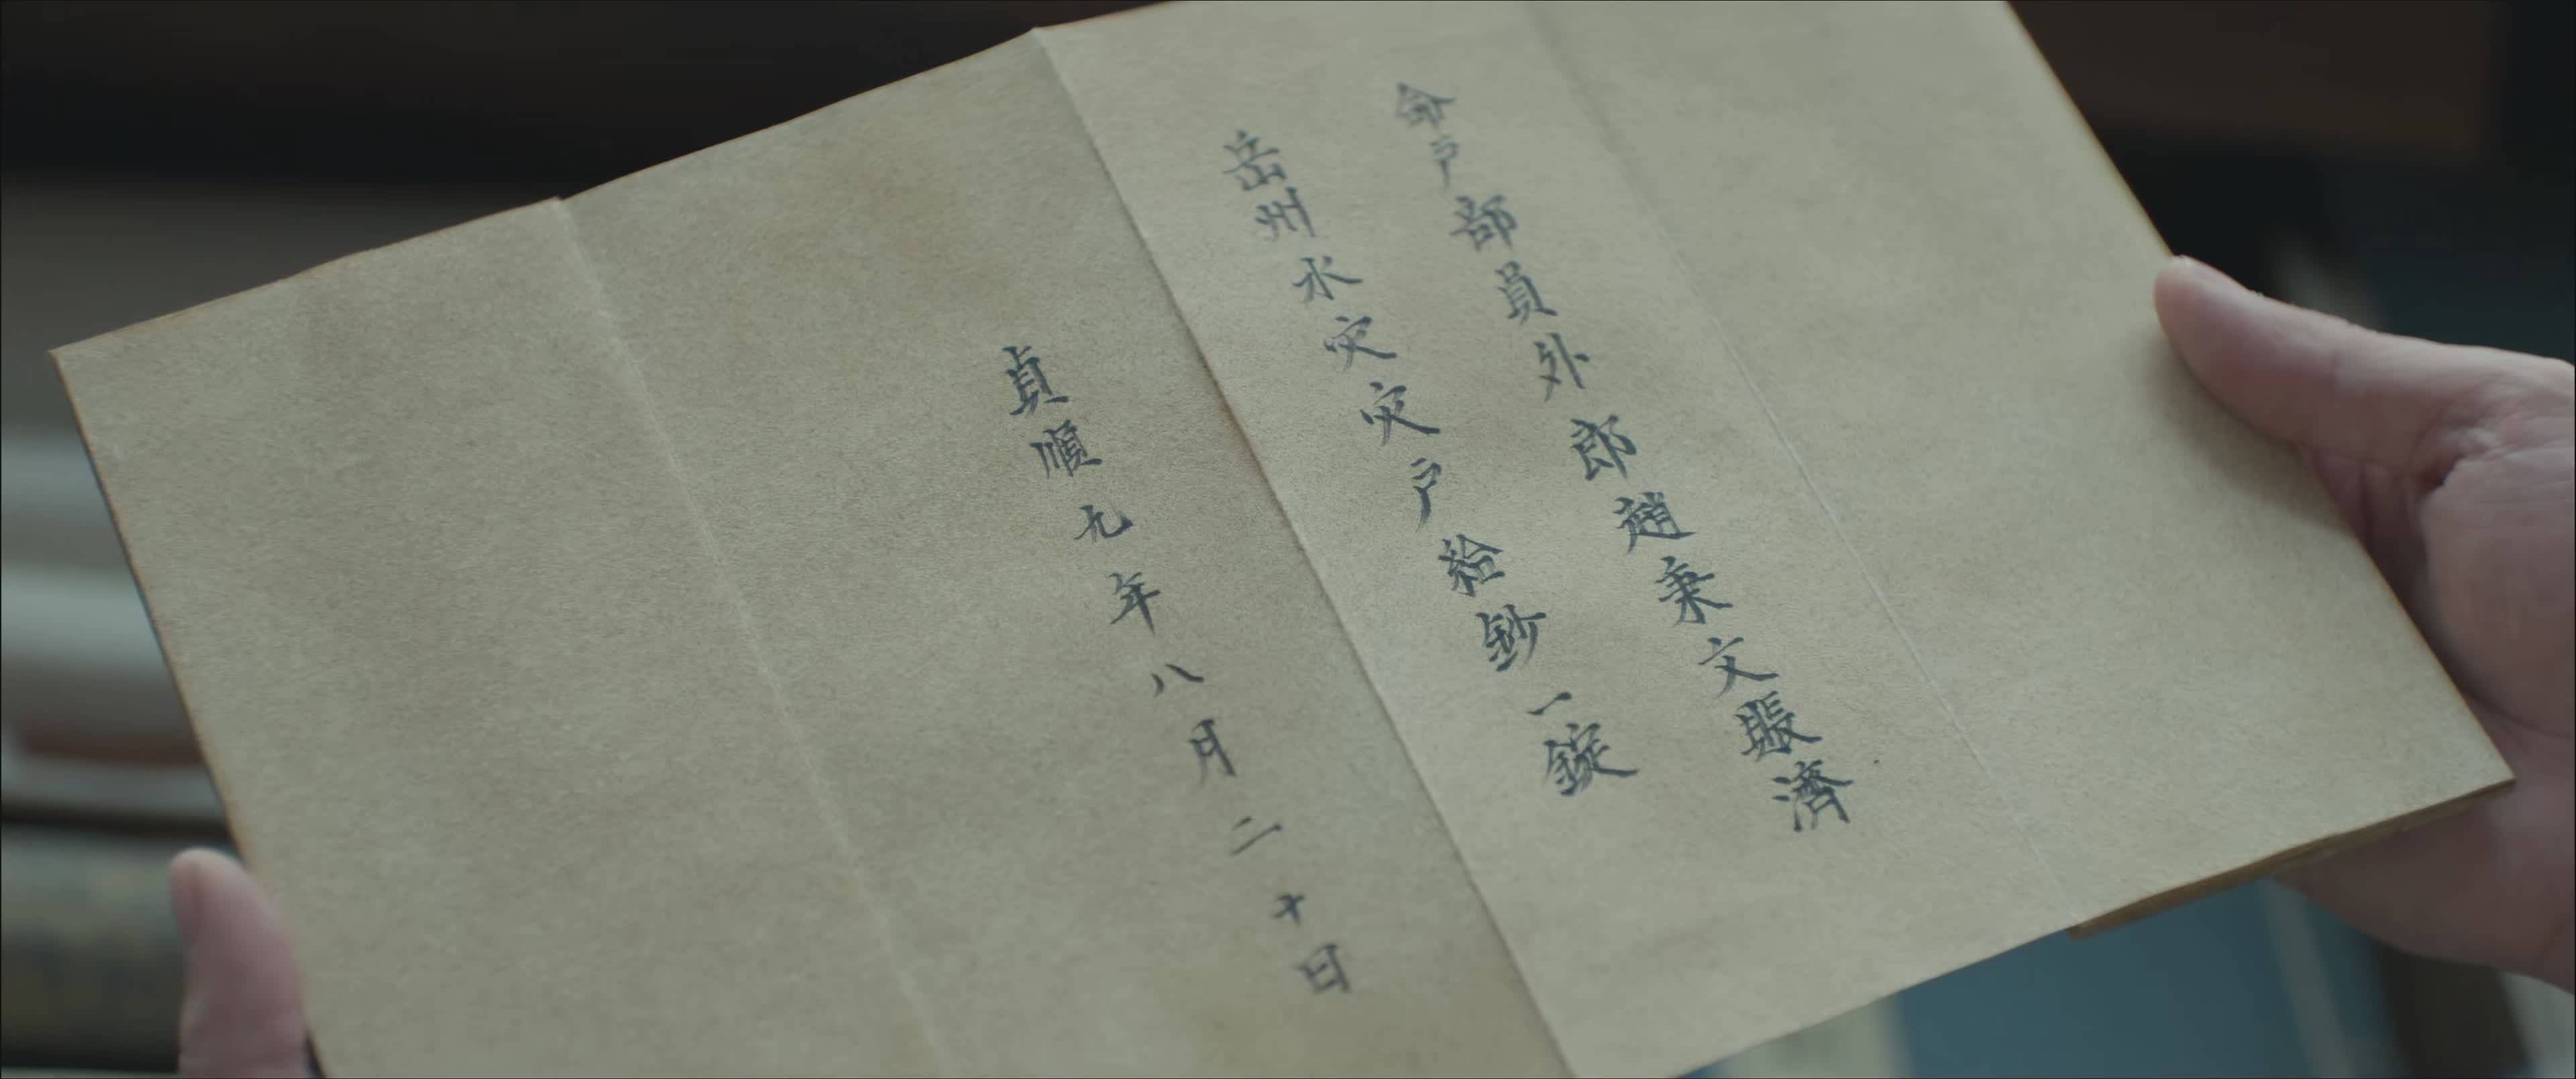 命戶部員外郎趙秉文賑濟
岳州水灾灾戶給鈔一錠
貞順九年八月二十日